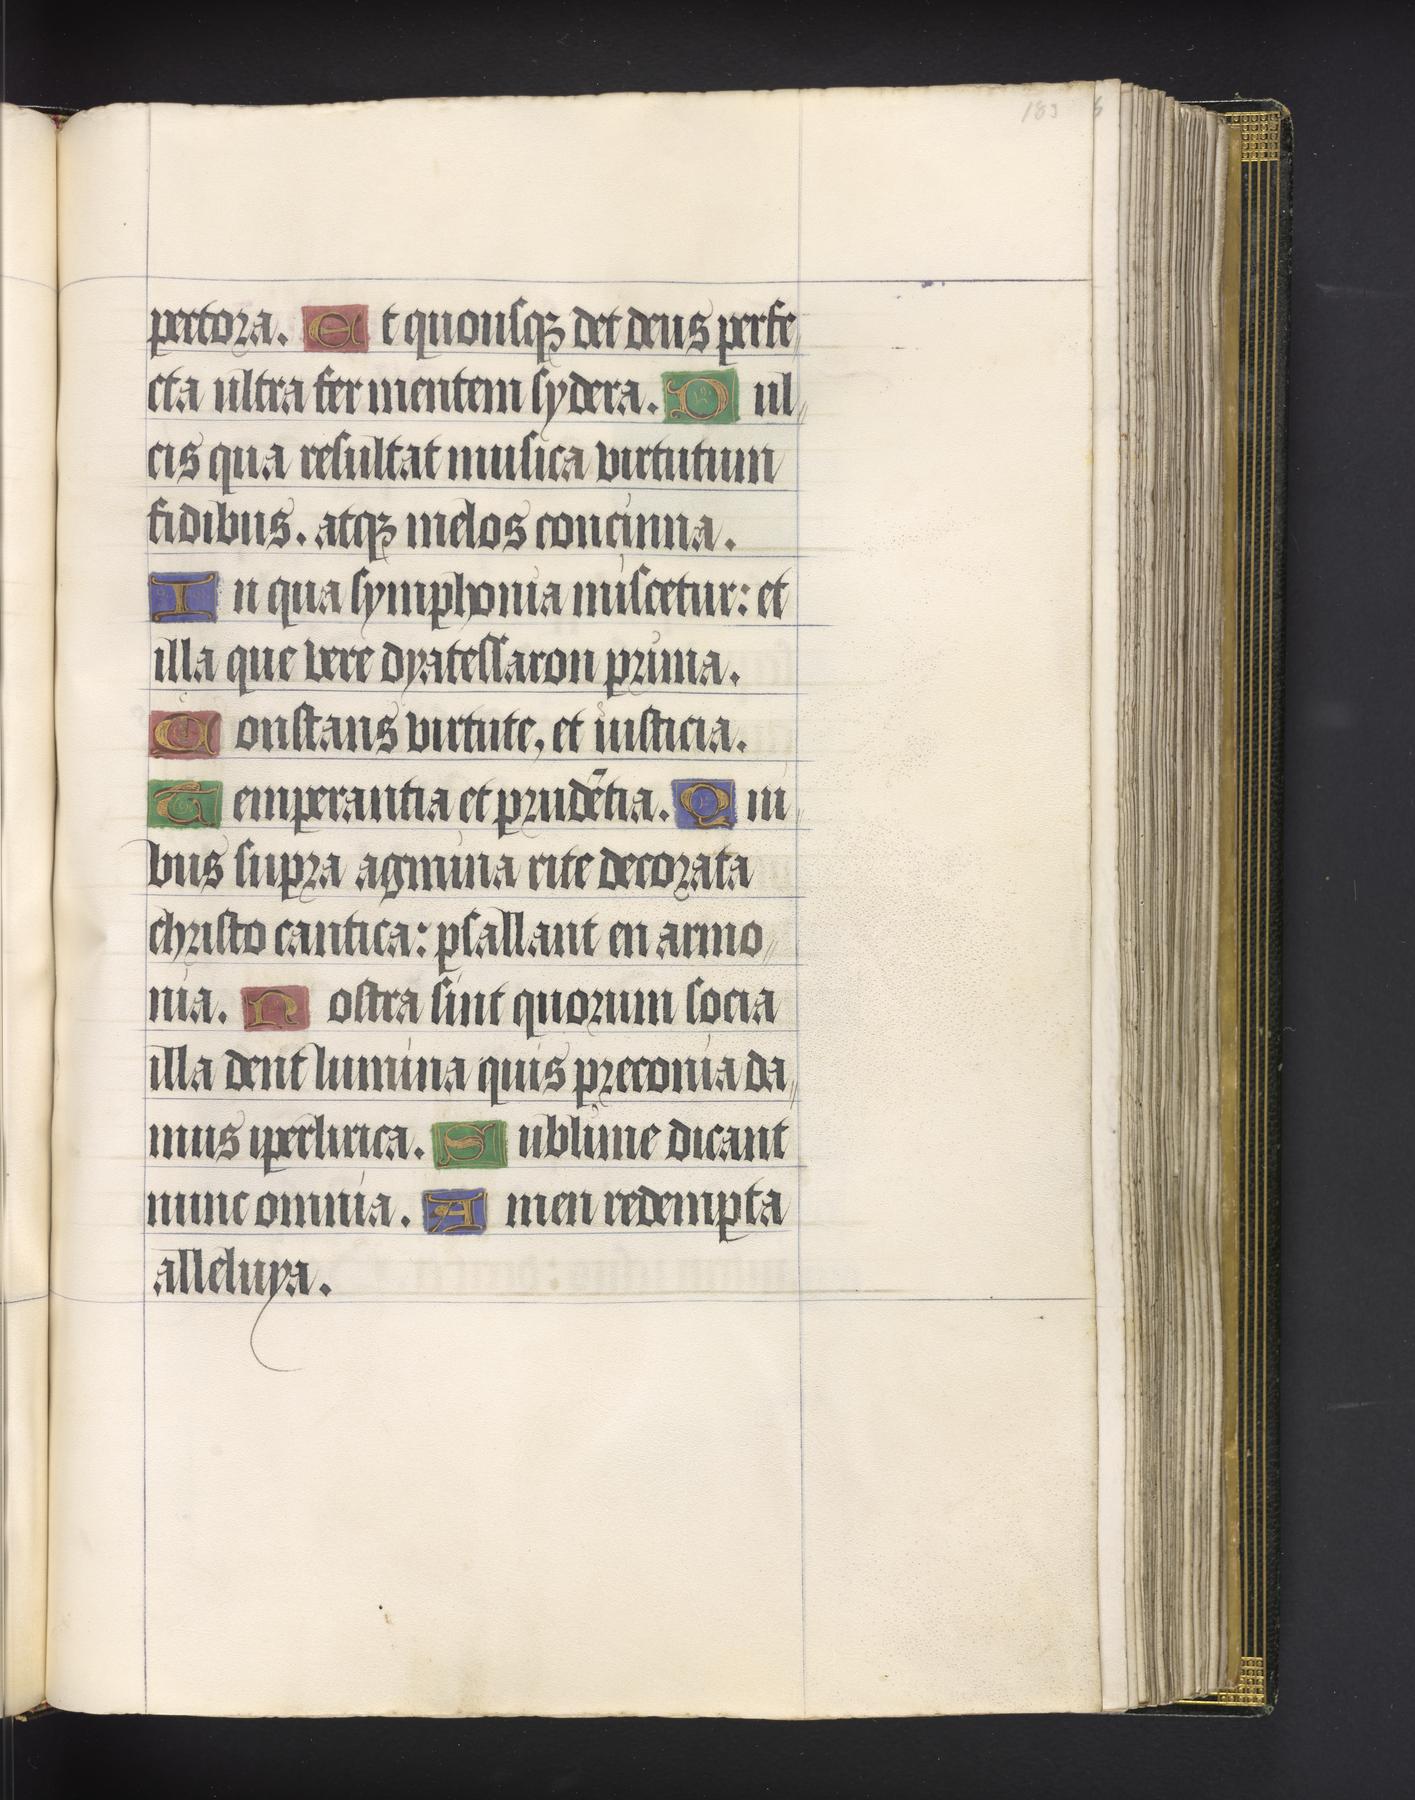 183
pectora. Et quousqꝫ det deus perfe
cta ultra fer mentem sydera. Dul
cis qua resultat musica virtutum
fidibus. atqꝫ melos concinna.
In qua symphonia miscetur: et
illa que vere dyatessaron prima.
Constans virtute, et iusticia.
Temperantia et prudẽtia. Qui
bus supra agmina rite decorata
christo cantica: psallant en armo
nia. Nostra sint quorum socia
illa dent lumina quis preconia da
mus iperlirica. Sublime dicant
nunc omnia. Amen redempta
alleluya.